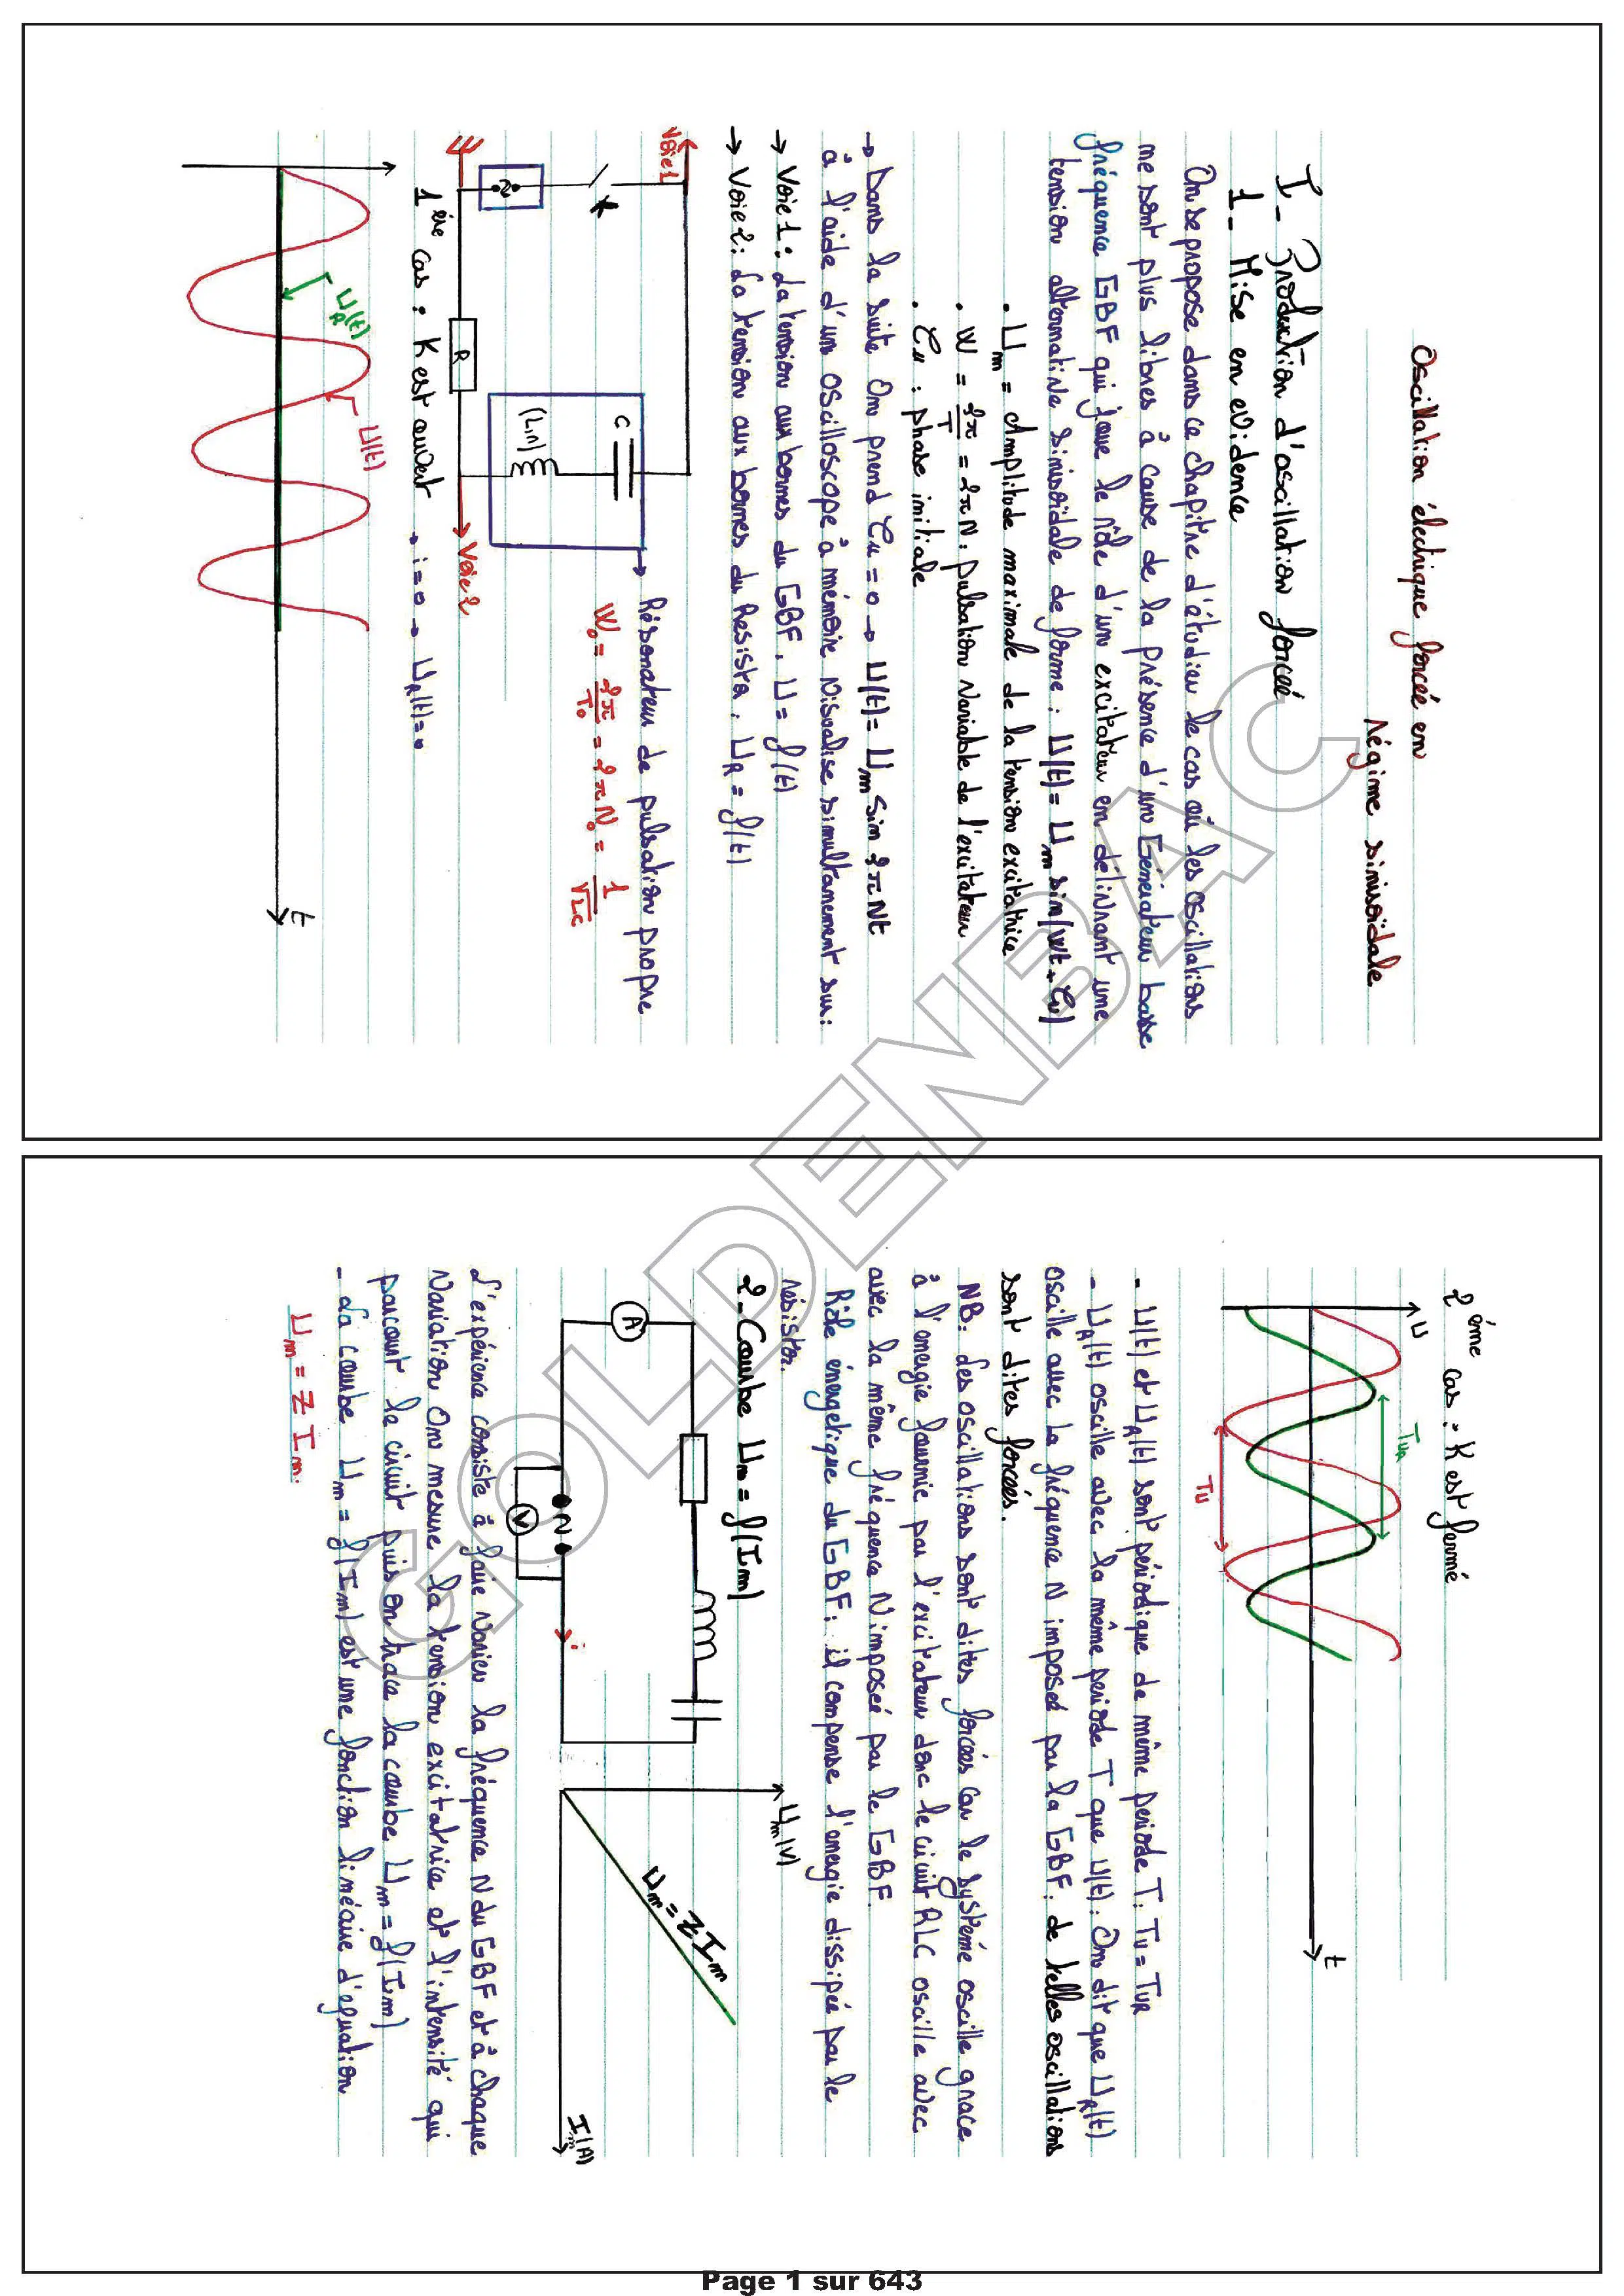 Oscillation électrique forcée en
Régime sinusoïdale
I- Production d'oscillation forcée
1- Mise en evidence
On se propose dans ce chapitre d'étudier le cas où les oscillations
ne sont plus libres à cause de la présence d'un Générateur basse
fréquence GBF qui joue le rôle d'un excitateur en délivrant une
tension alternative sinusoidale de forme : U(t) = Um sin(wt + φu)
• Um = Amplitude maximale de la tension excitatrice
• W = 2π/T = 2πN. pulsation variable de l'excitateur
• φu : phase initiale
→ Dans la suite On prend φu = 0 → U(t) = Um Sin 2πNt
à l'aide d'un oscilloscope à mémoire visualise simultanement sur:
→ Voie 1 : La tension aux bornes du GBF. U = f(t)
→ Voie 2 : La tension aux bornes du Resistor : UR = f(t)
Voie 1
C
(L,r)
R
Voie 2
Résonateur de pulsation propre
W₀ = 2π/T₀ = 2πN₀ = 1/√LC
1ère cas : K est ouvert → i = 0 → UR(t) = 0
UR(t)
U(t)
t
2ème cas : K est fermé
U
TUR
TU
t
- U(t) et UR(t) sont périodique de même periode T. TU = TUR
- UR(t) oscille avec la même periode T que U(t). On dit que UR(t)
oscille avec la fréquence N imposé par la GBF. de telles oscillations
sont dites forcés.
NB: Les oscillations sont dites forcés car le systemé oscille grace
à l'energie fournie par l'excitateur donc le circuit RLC oscille avec
avec la même fréquence N imposé par le GBF.
Rôle énergetique du GBF : il compense l'energie dissipée par le
résistor.
2- Courbe Um = f(Im)
A
V
N
i
Um(V)
Um = Z Im
Im(A)
L'expérience consiste à faire varier la fréquence N du GBF et à chaque
variation On mesure la tension excitatrice et l'intensité qui
parcourt le circuit puis on trace la courbe Um = f(Im)
- La courbe Um = f(Im) est une fonction linéaire d'equation
Um = Z Im.
GOLDENBAC
Page 1 sur 643